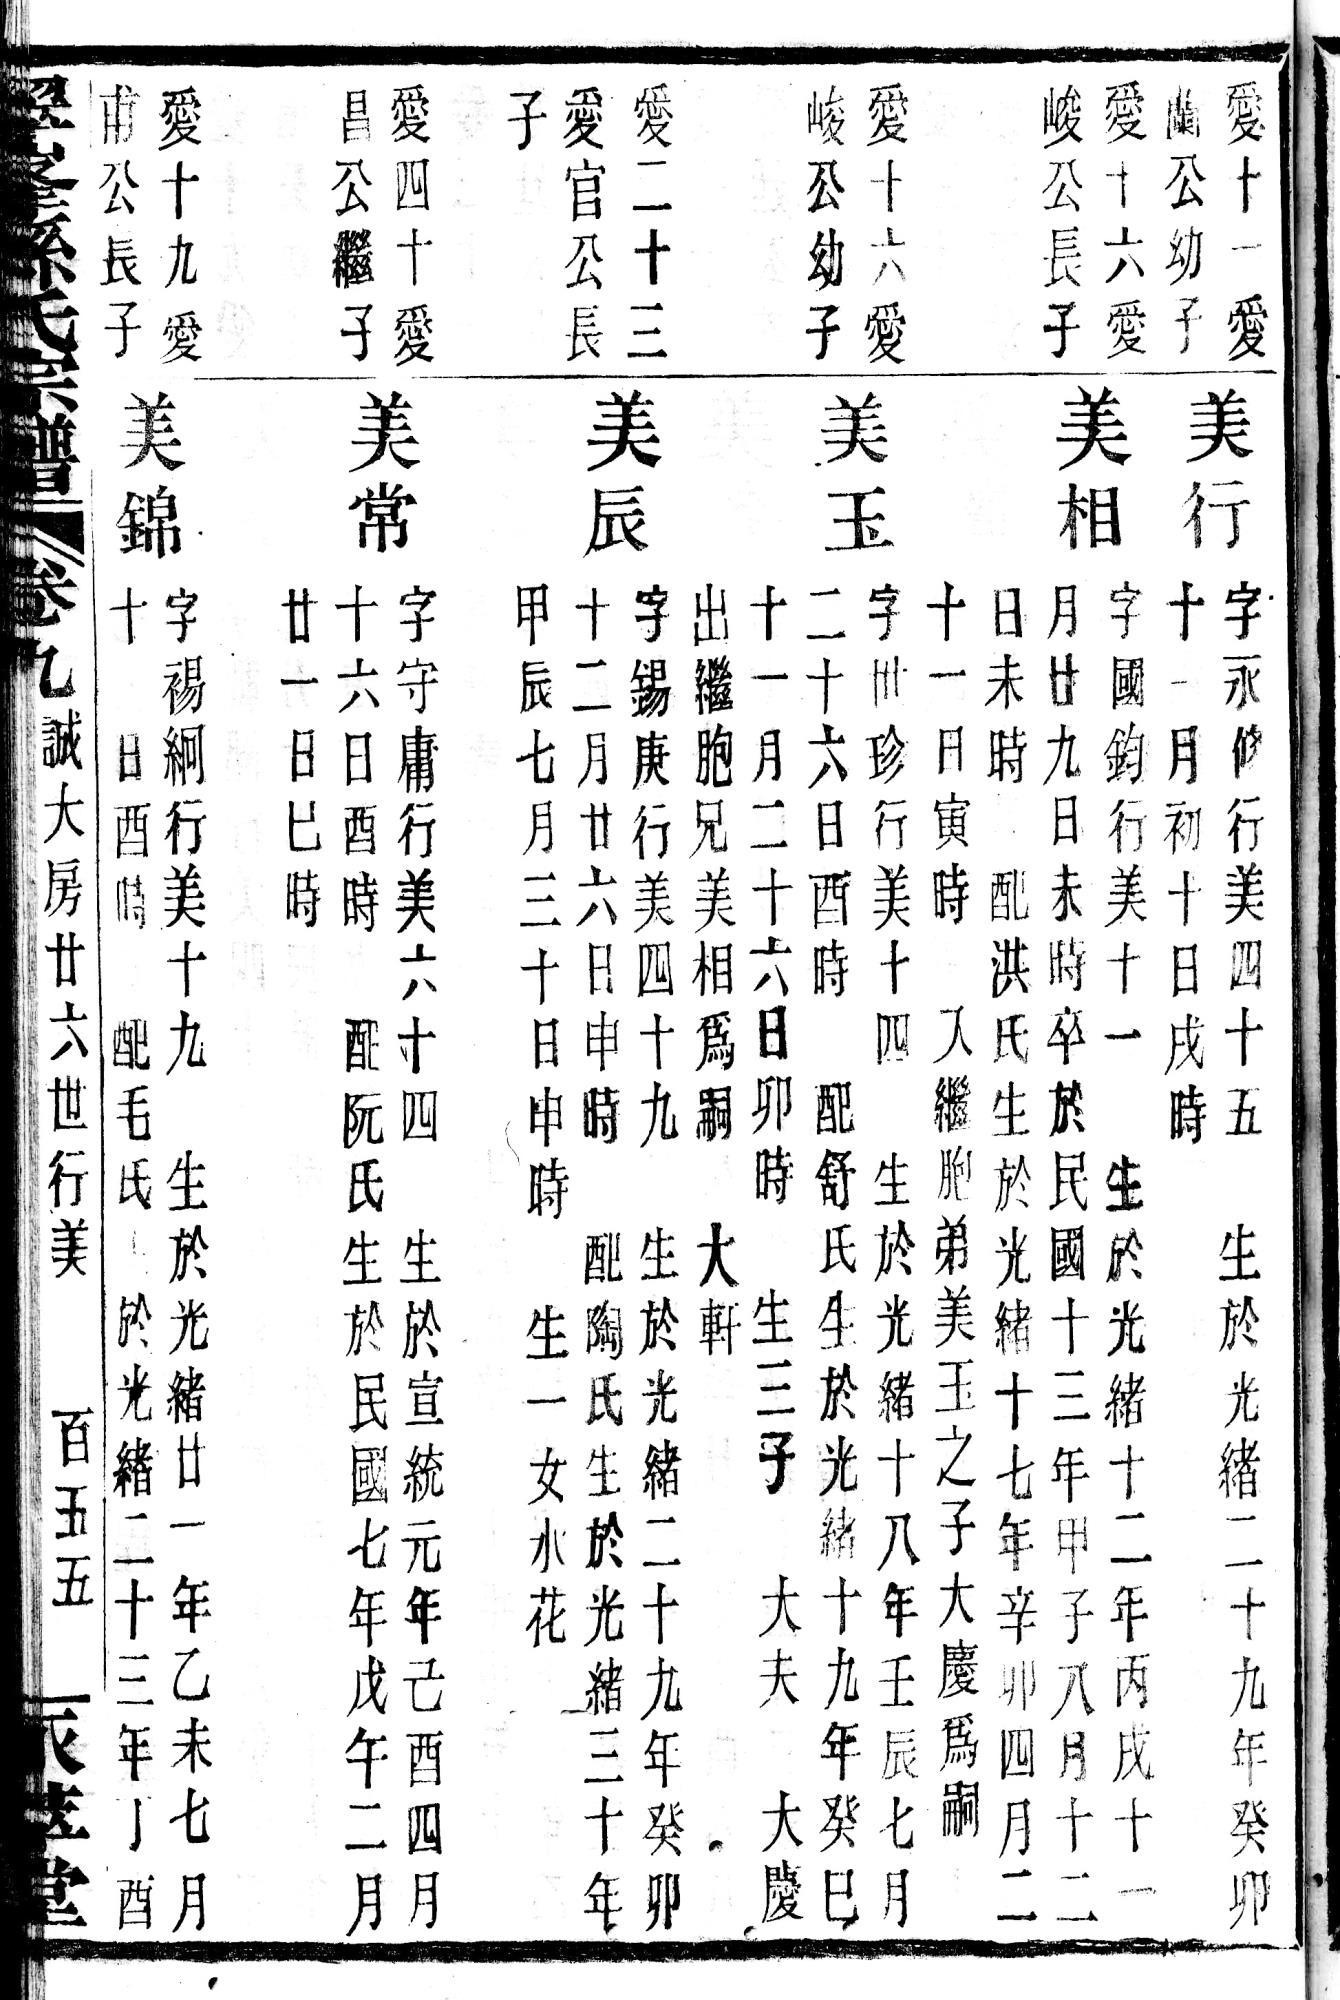 愛十一愛
蘭公幼子
美行
字永修行美四十五　生於光緒二十九年癸卯
十一月初十日戌時
愛十六愛
峻公長子
美相
字國鈞行美十一　生於光緒十二年丙戌十一
月廿九日未時卒於民國十三年甲子八月十二
日未時　配洪氏生於光緒十七年辛卯四月二
十一日寅時　入繼胞弟美玉之子大慶爲嗣
愛十六愛
峻公幼子
美玉
字世珍行美十四　生於光緒十八年壬辰七月
二十六日酉時　配舒氏生於光緒十九年癸巳
十一月二十六日卯時　生三子　大夫　大慶
出繼胞兄美相爲嗣　大軒
愛二十三
愛官公長
子
美辰
字錫庚行美四十九　生於光緒二十九年癸卯
十二月廿六日申時　配陶氏生於光緒三十年
甲辰七月三十日申時　生一女水花
愛四十愛
昌公繼子
美常
字守庸行美六十四　生於宣統元年己酉四月
十六日酉時　配阮氏生於民國七年戊午二月
廿一日巳時
愛十九愛
甫公長子
美錦
字裼絅行美十九　生於光緒廿一年乙未七月
十　日酉時　配毛氏　於光緒二十三年丁酉
孫氏宗譜　卷九　誠大房廿六世行美　百五五　堂